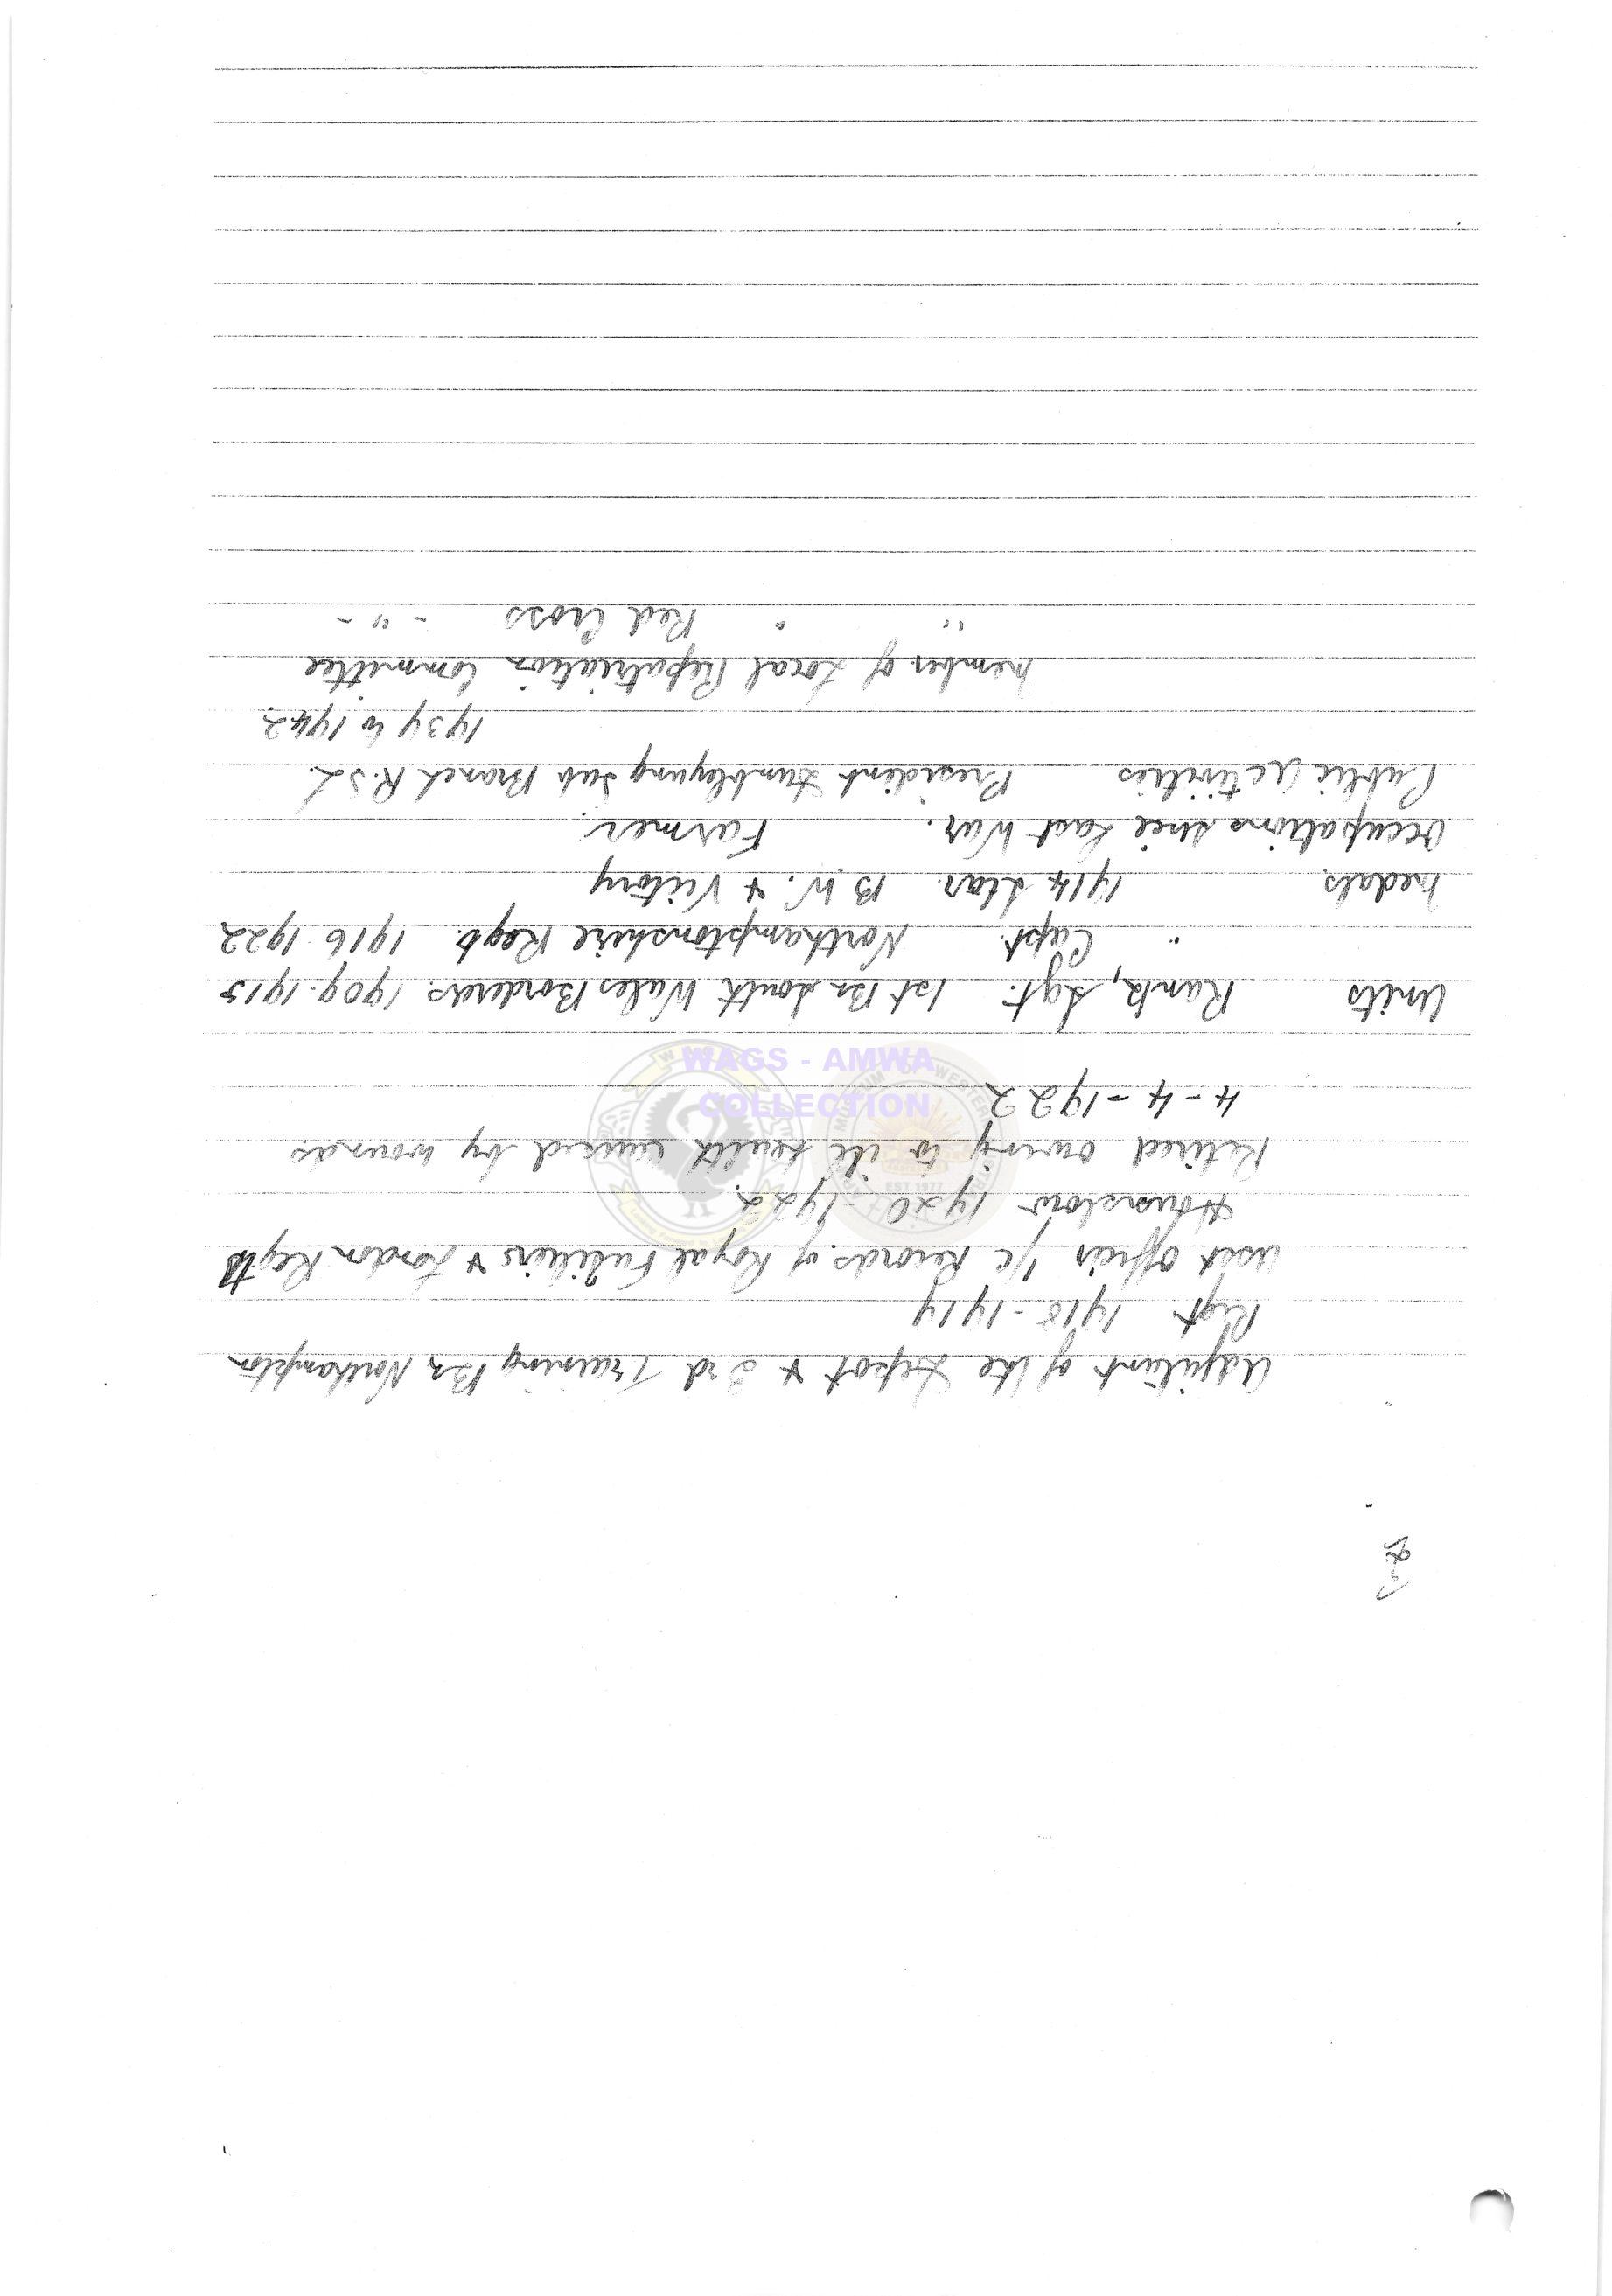 Adjutant of the Depot & 3rd Training Bn Northampton
Regt. 1918-1919
Asst Officer I/C Records of Royal Fusiliers & London Regts
Hounslow 1920-1922.
Retired owing to ill health caused by wounds
4-4-1922
WAGS - AMWA
COLLECTION
EST 1977
Units Rank, Sgt. 1st Bn South Wales Borderers. 1909-1915
" Capt. Northamptonshire Regt. 1916-1922
Medals. 1914 Star B.W. & Victory
Occupations since Last War. Farmer.
Public Activities President Dumbleyung Sub Branch R.S.L.
1939 to 1942.
Member of Local Repatriation Committee
" " Red Cross - " -